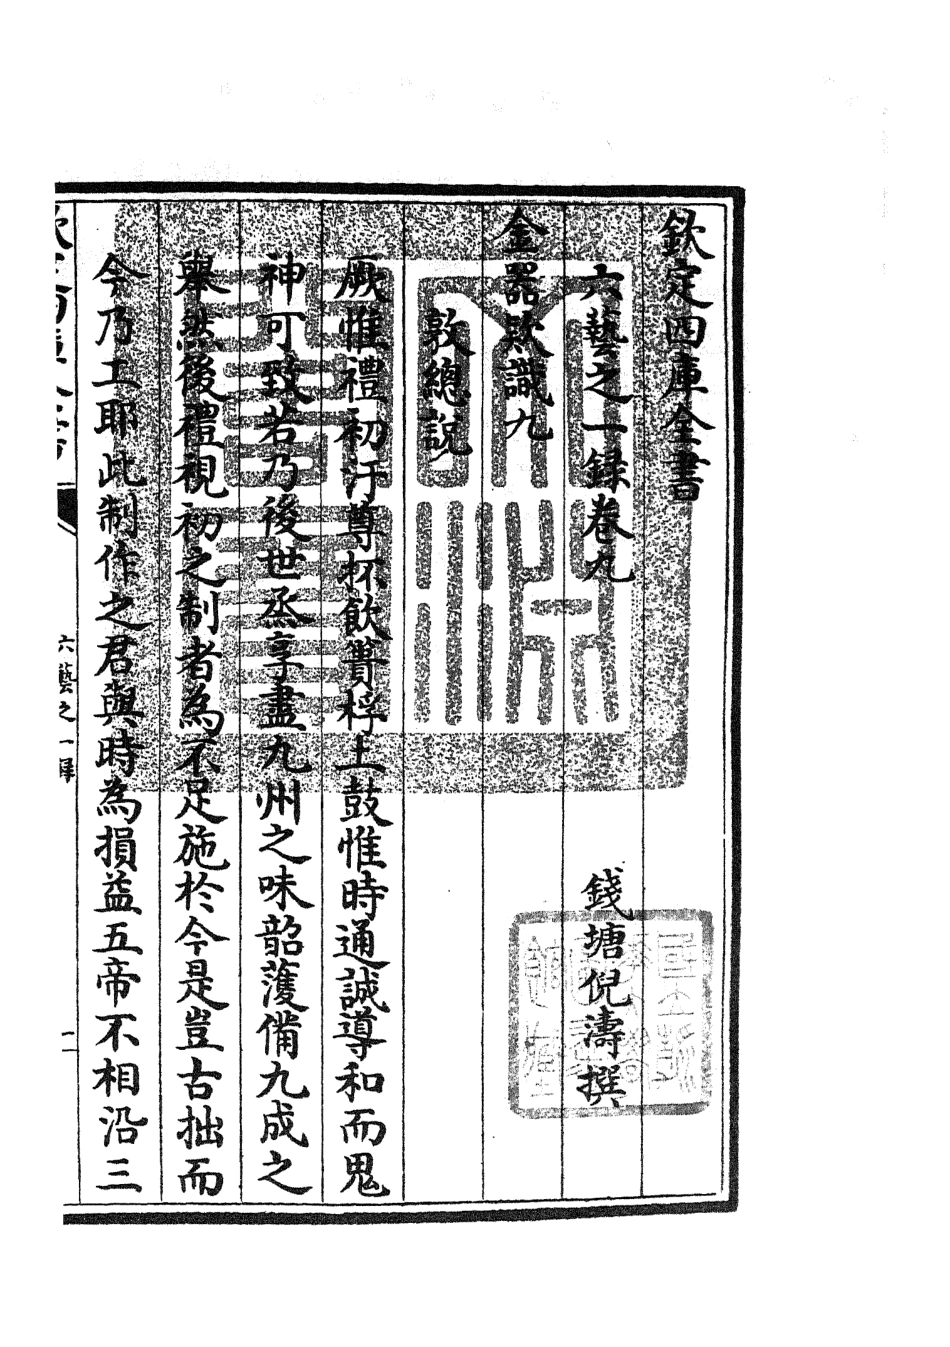 欽定四庫全書
六藝之一録卷九
錢塘倪濤撰
金器欵識九
敦總說
厥惟禮初汙尊抔飲蕢桴土鼓惟時通誠導和而鬼
神可致若乃後世烝享盡九州之味韶濩備九成之
舉然後禮視初之制者為不足施於今是豈古拙而
今乃工耶此制作之君與時為損益五帝不相沿三
六藝之一録
一